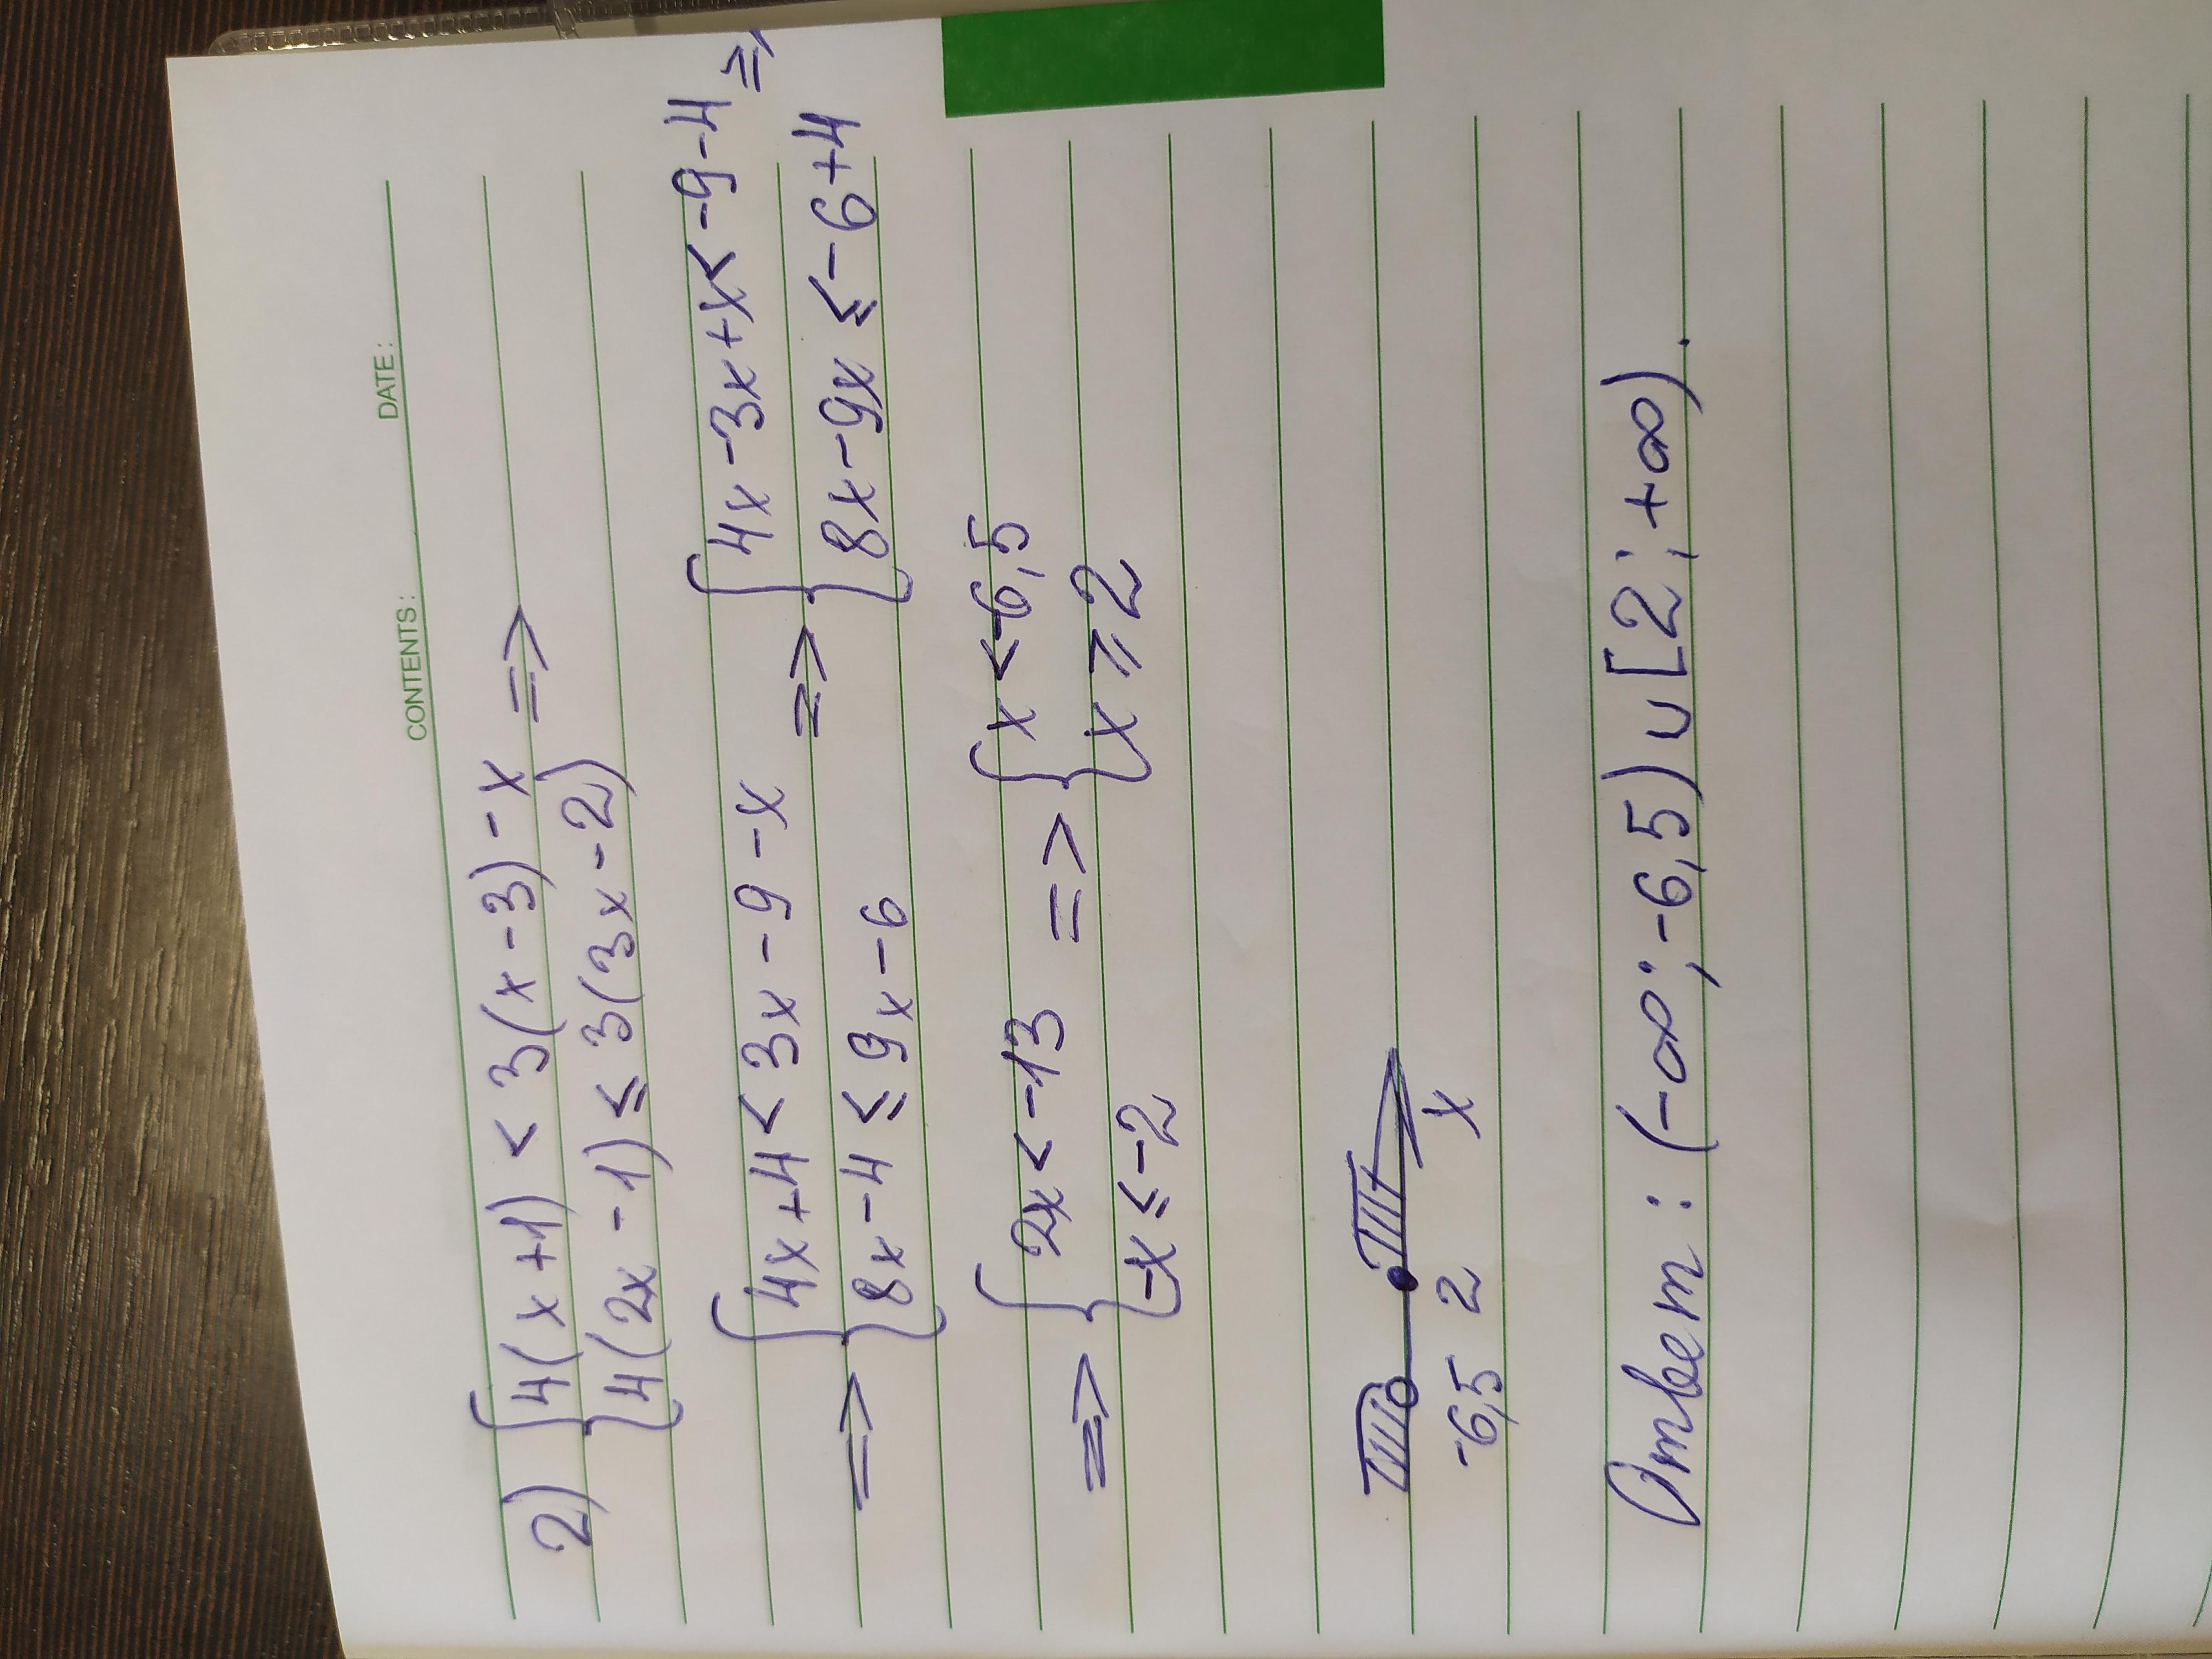 CONTENTS: DATE:
2) { 4(x+1) < 3(x-3)-x =>
4(2x-1) ≤ 3(3x-2)
=> { 4x+4 < 3x-9-x => { 4x-3x+x < -9-4 =>
8x-4 ≤ 9x-6 8x-9x ≤ -6+4
=> { 2x < -13 => { x < -6,5
-x ≤ -2 x ≥ 2
-6,5 2 x
Ответ: (-∞; -6,5) ∪ [2; +∞).